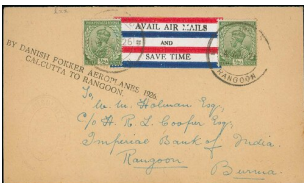 AVAIL AIR MAILS
AND
SAVE TIME
RANGOON
BY DANISH FOKKER AEROPLANE 1926.
CALCUTTA TO RANGOON.
To,
W. W. Holman Esq,
C/o H. R. L. Cooper Esq,
Imperial Bank of India.
Rangoon
Burma